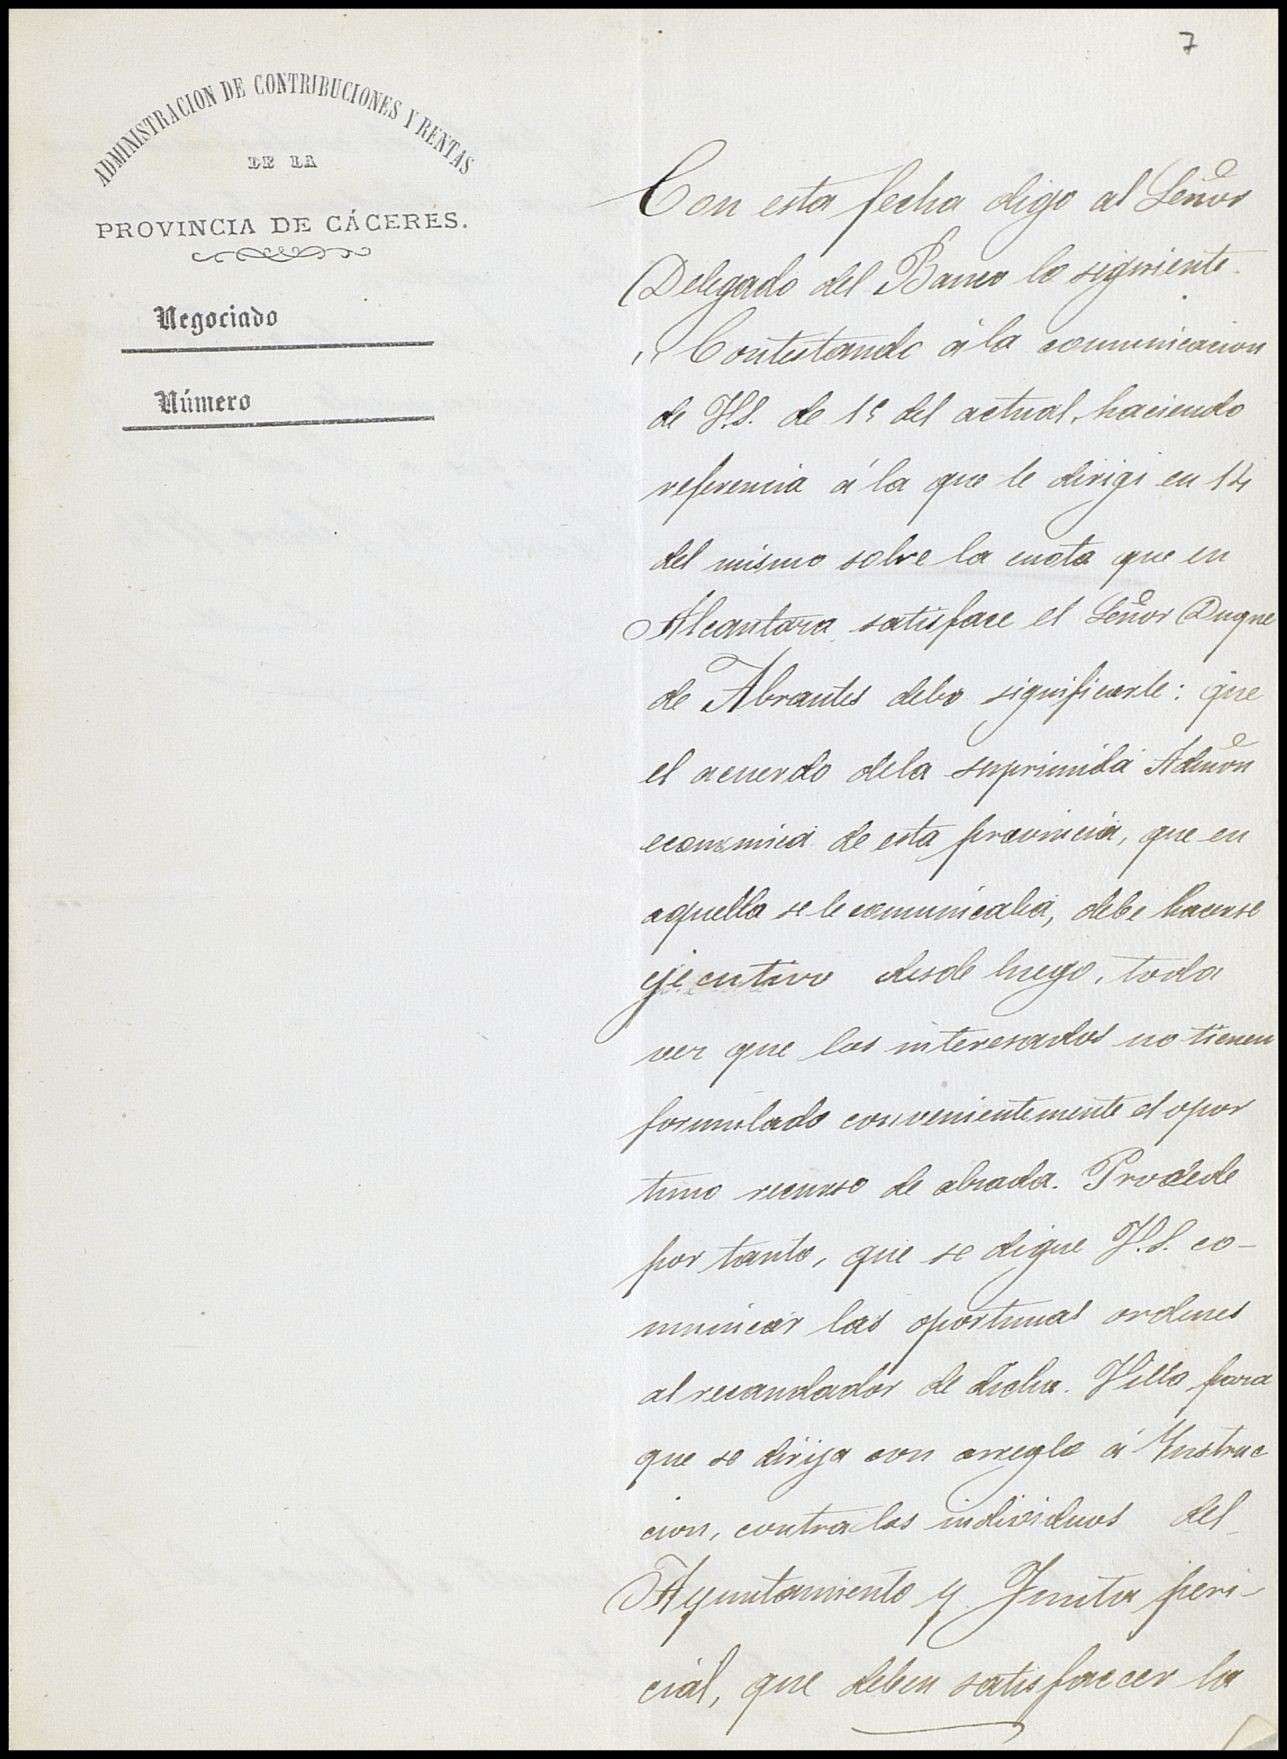 7
ADMINISTRACION DE CONTRIBUCIONES Y RENTAS
DE LA
PROVINCIA DE CÁCERES.
Negociado
Número
Con esta fecha digo al Señor
Delegado del Banco lo siguiente.
"Contestando á la comunicacion
de V.S. de 15 del actual, haciendo
referencia á la que le dirigi en 14
del mismo sobre la cuota que en
Alcantara satisface el Señor Duque
de Abrantes debo significarle: que
el acuerdo de la suprimida Admon
economica de esta provincia, que en
aquella se le comunicaba, debe hacerse
ejecutivo desde luego, toda
vez que los interesados no tienen
formulado convenientemente el opor
tuno recurso de alzada. Procede
por tanto, que se digne V.S. co-
municar las oportunas ordenes
al recaudador de dicha Villa para
que se dirija con arreglo á Ynstruc
cion, contra los individuos del
Ayuntamiento y Junta peri-
cial, que deben satisfaccer la